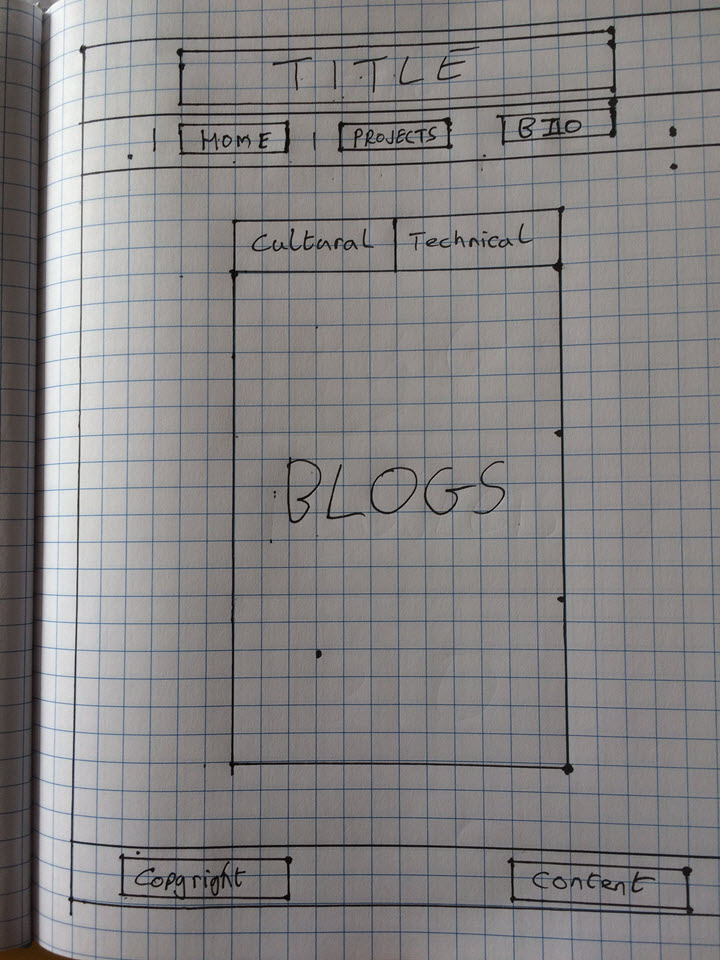 TITLE
HOME PROJECTS BIO
Cultural Technical
BLOGS
Copyright Content